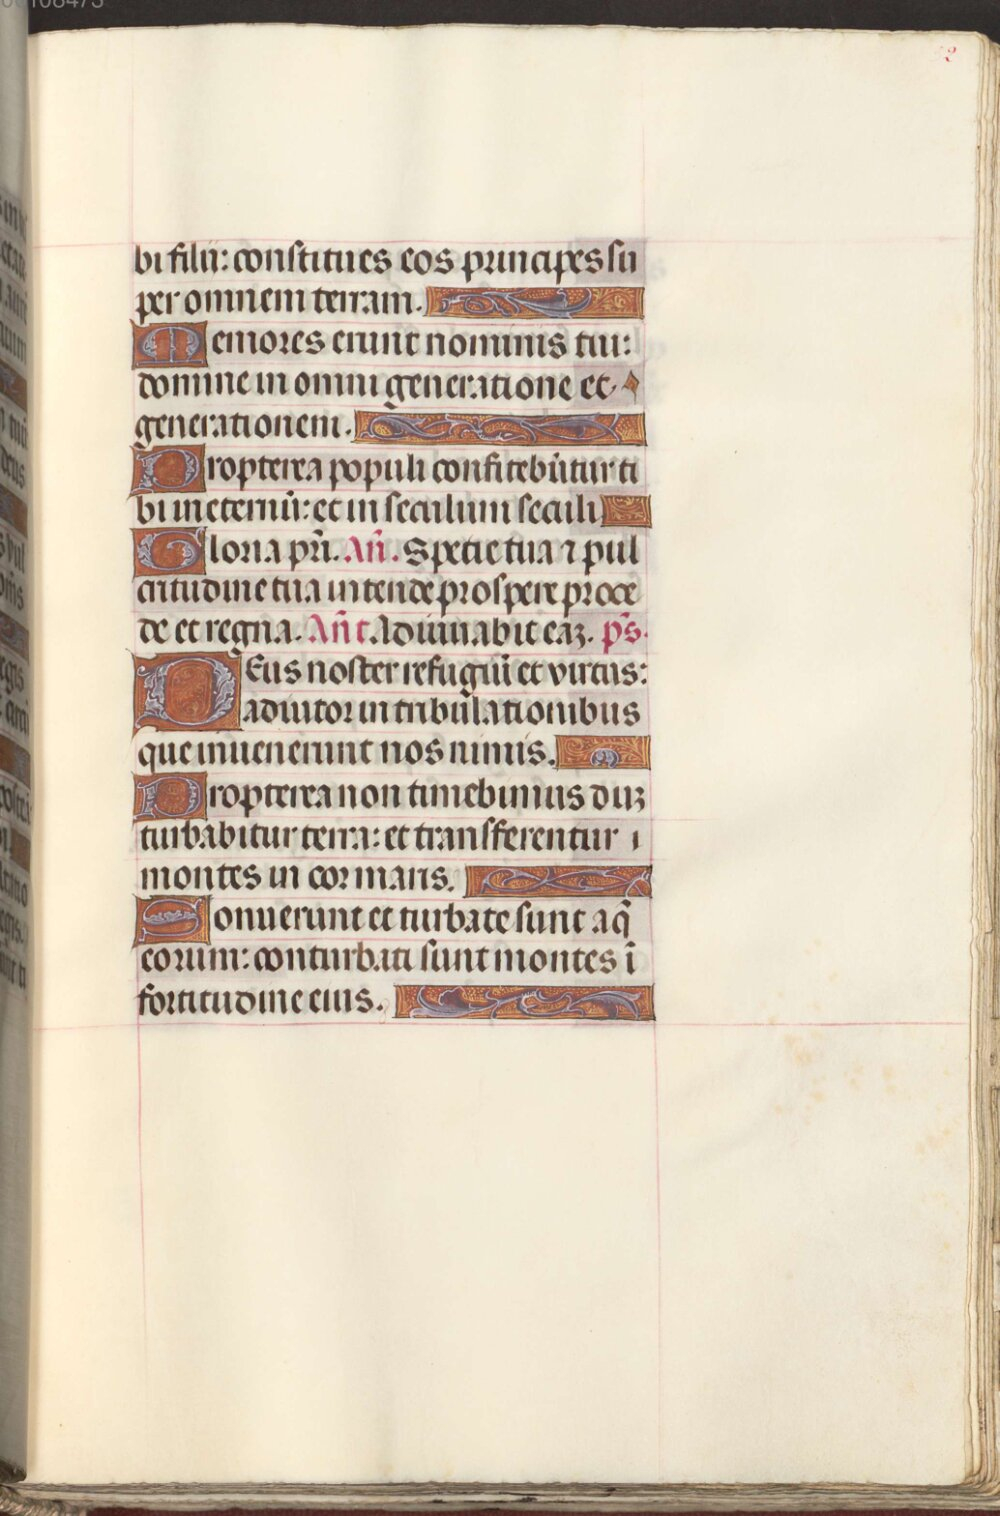 bi filii: constitues eos principes su
per omnem terram.
Memores erunt nominis tui:
domine in omni generatione et
generationem.
Propterea populi confitebūtur ti
bi in eternū: et in seculum seculi
Gloria pr̄i. Añ. Specie tua ⁊ pul
critudine tua intende prospere proce
de et regna. Añt Adiuuabit eaꝫ. p̄s.
DEus noster refugiū et virtus:
adiutor in tribulationibus
que inuenerunt nos nimis.
Propterea non timebimus duꝫ
turbabitur terra: et transferentur
montes in cor maris.
Sonuerunt et turbate sunt aq̄
eorum: conturbati sunt montes ī
fortitudine eius.